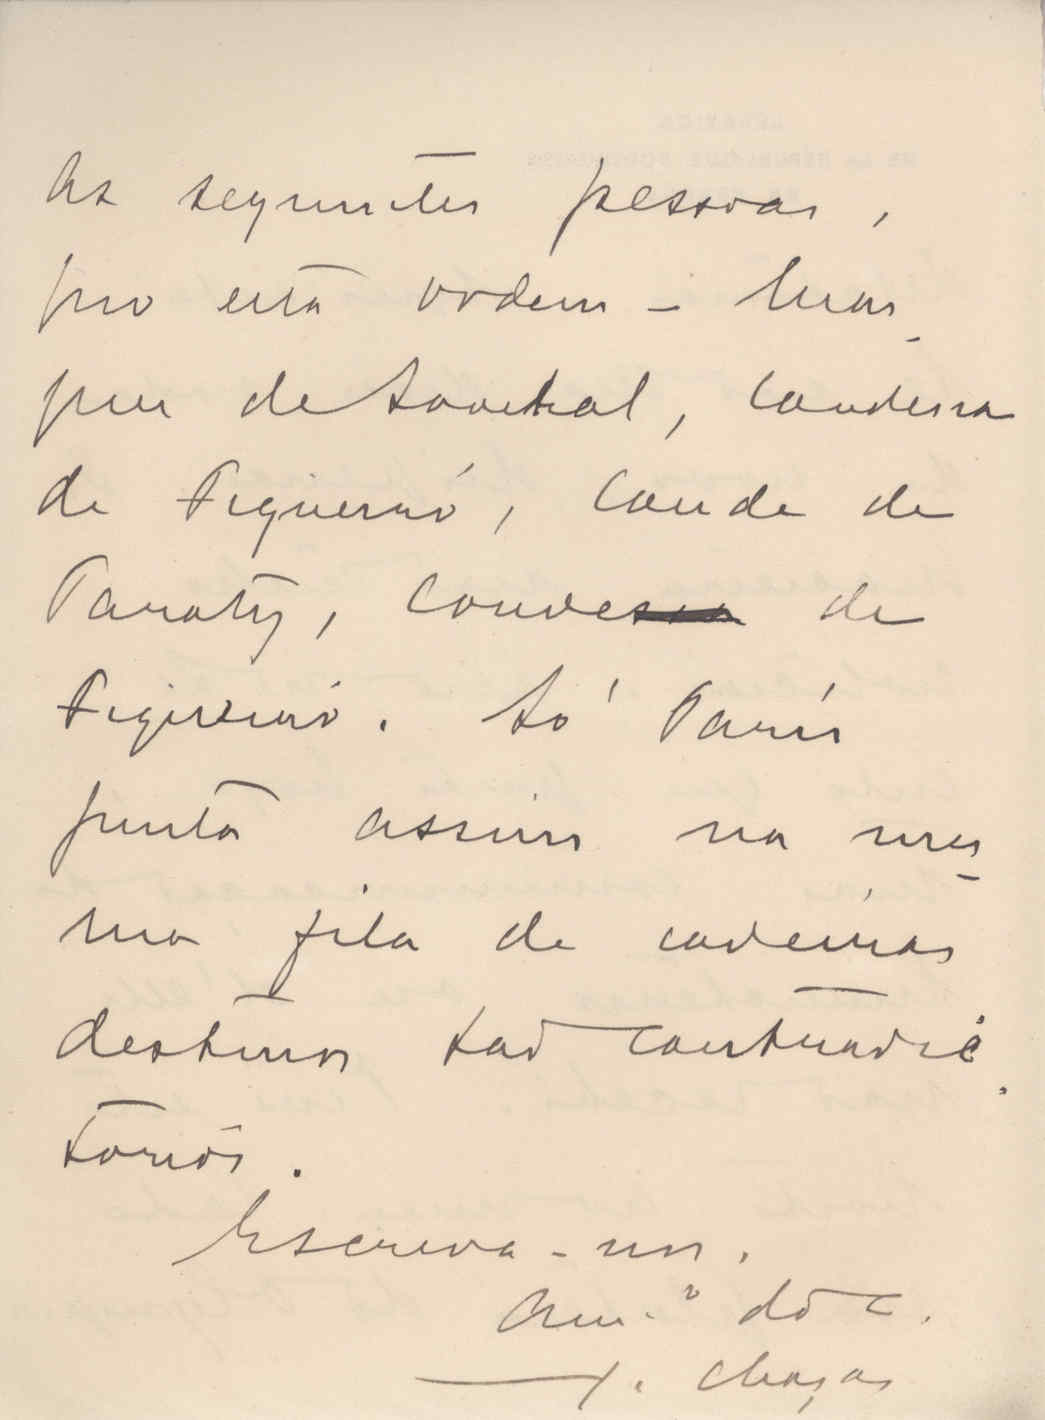 as seguintes pessoas,
por esta ordem – Mar-
quez de Soveral, Condessa
de Figueiró, Conde de
Paraty, Conde de
Figueiró. Só Paris
junta assim na mes-
ma fila de cadeiras
destinos tao contradic-
torios.
Escreva-nos.
Am.º do C.
J. Chagas